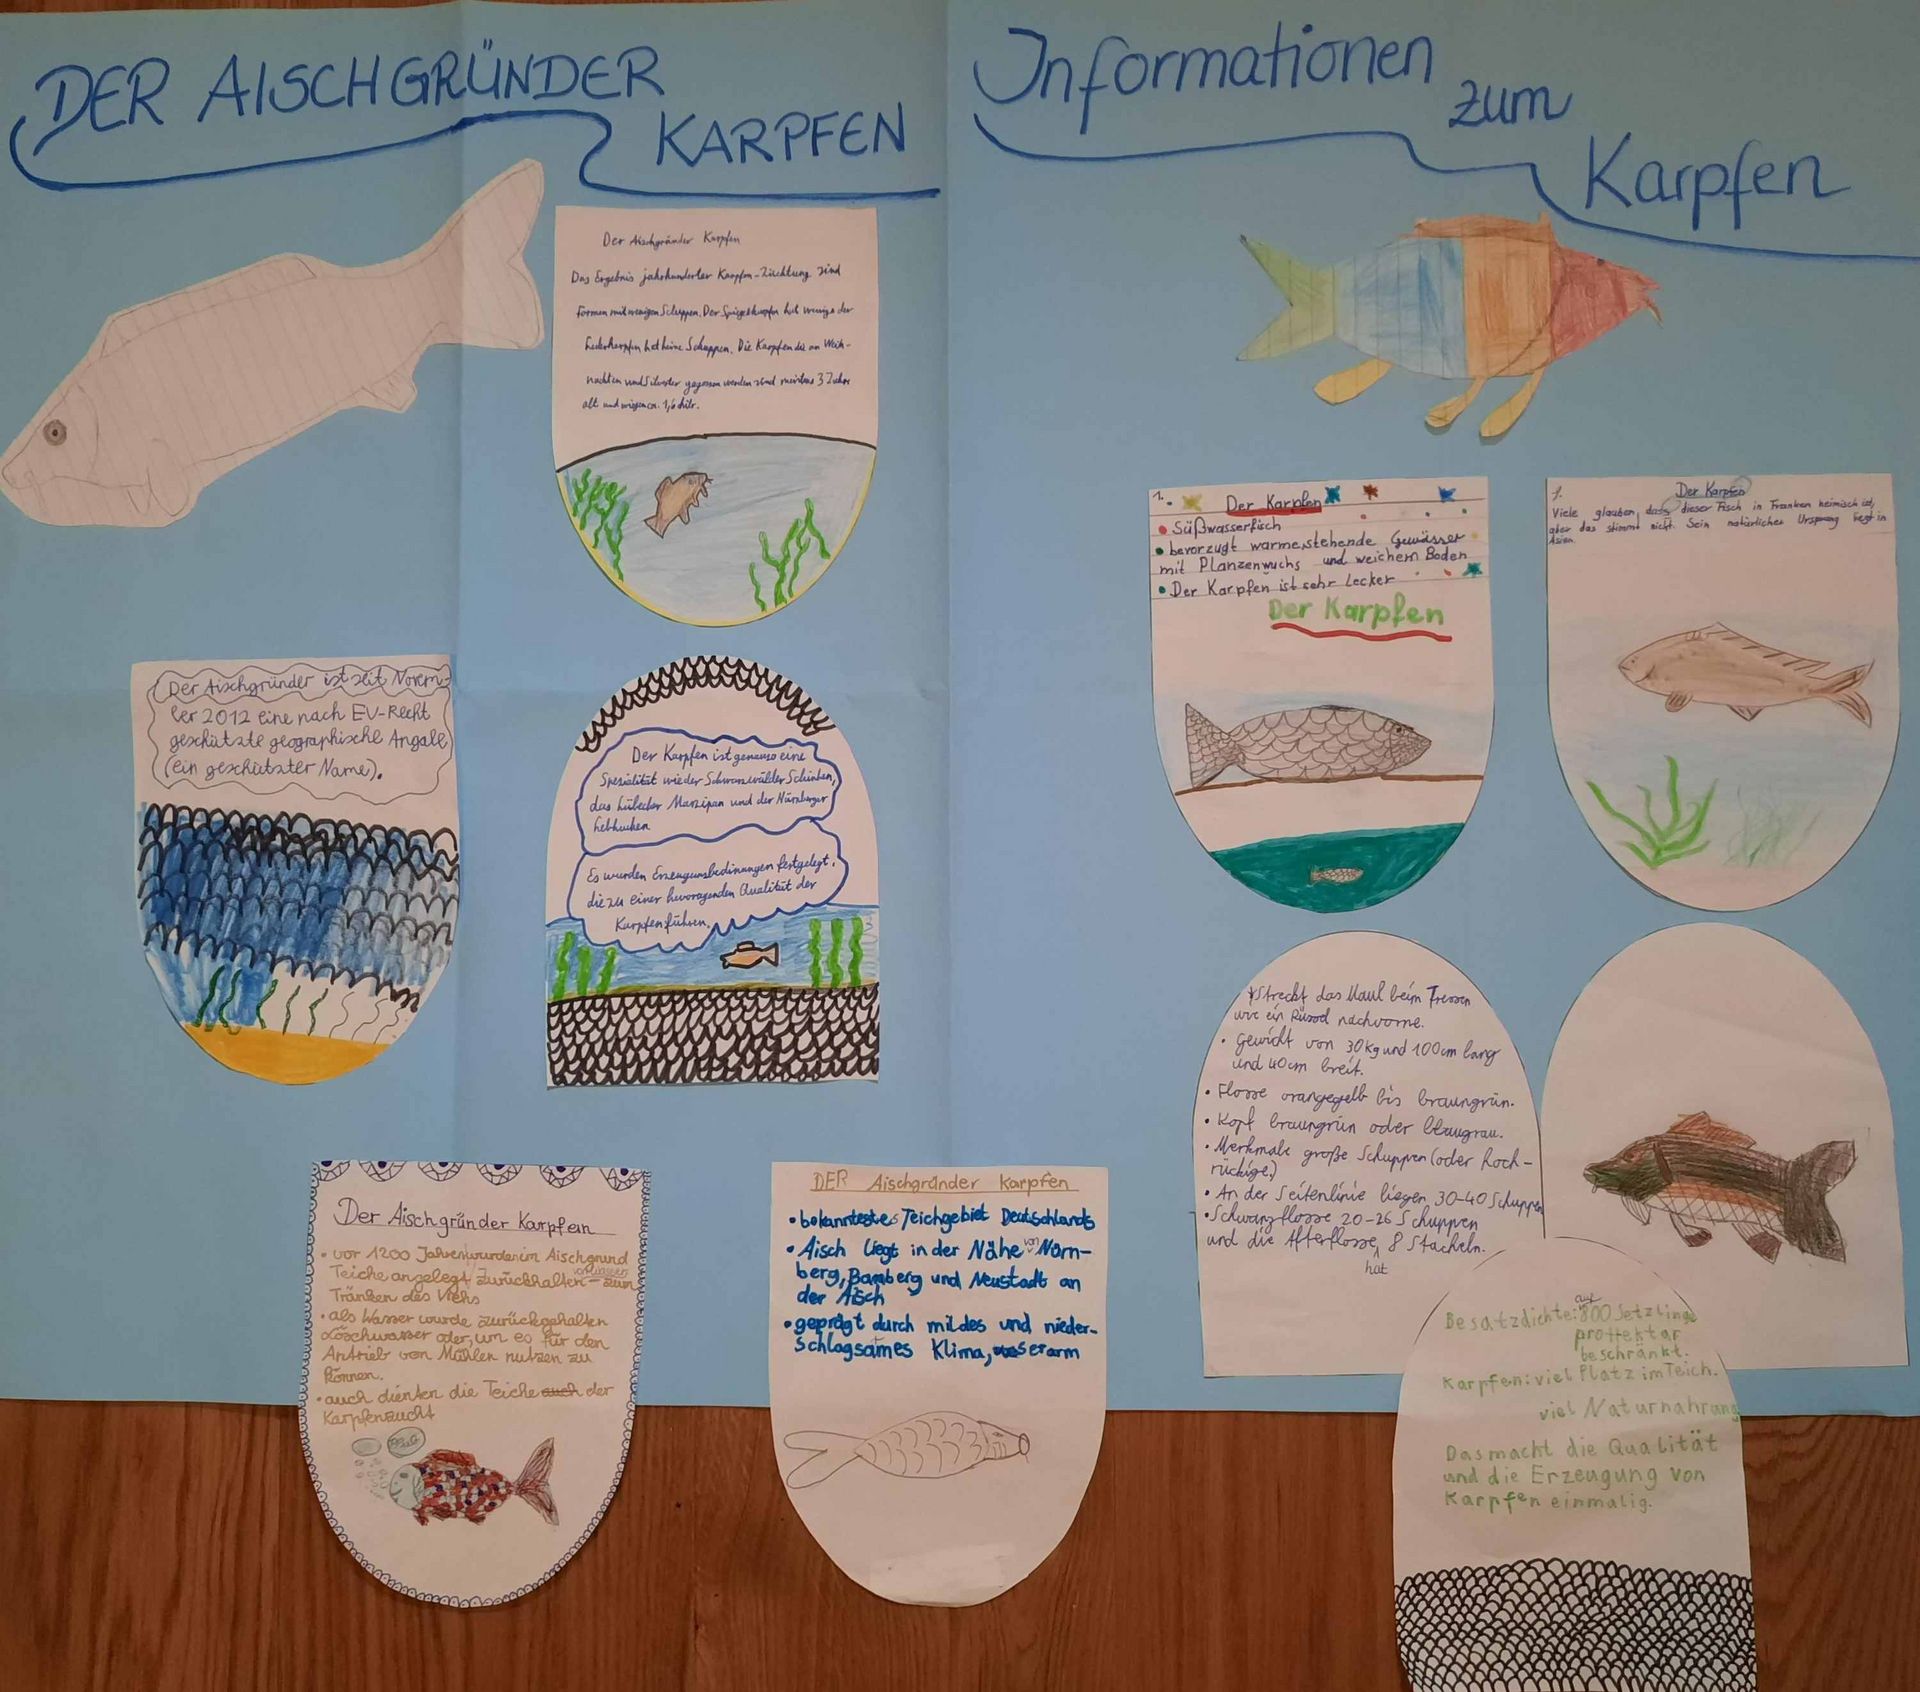 DER AISCHGRÜNDER
KARPFEN
Der Aischgründer Karpfen
Das Ergebnis jahrhunderter Karpfen-Züchtung sind
Formen mit wenigen Schuppen. Der Spiegelkarpfen hat wenige der
Lederkarpfen hat keine Schuppen. Die Karpfen die an Weih-
nachten und Silvester gegessen werden sind meistens 3 Jahre
alt und wiegen ca. 1,6 kilo.
Der Aischgründer ist seit Novem-
ber 2012 eine nach EU-Recht
geschützte geographische Angabe
(ein geschützter Name).
Der Karpfen ist genauso eine
Spezialität wie der Schwarzwälder Schinken,
das Lübecker Marzipan und der Nürnberger
Lebkuchen
Es wurden Erzeugunsbedinungen festgelegt,
die zu einer hevoragenden Qualität der
Karpfen führen.
Der Aischgründer Karpfen
• vor 1200 Jahren wurden im Aischgrund
Teiche angelegt zurückhalten von Wasser - zum
Tränken des Viehs
• als Wasser wurde zurückgehalten
Löschwasser oder, um es für den
Antrieb von Mühlen nutzen zu
können.
• auch dienten die Teiche auch der
Karpfenzucht
DER Aischgründer Karpfen
• bekanntestes Teichgebiet Deutschlands
• Aisch liegt in der Nähe von Nürn-
berg, Bamberg und Neustadt an
der Aisch
• geprägt durch mildes und nieder-
schlagsames Klima, wasserarm
Informationen
zum
Karpfen
1. Der Karpfen
• Süßwasserfisch
• bevorzugt warme, stehende Gewässer
mit Planzenwuchs und weichem Boden
• Der Karpfen ist sehr Lecker
Der Karpfen
1. Der Karpfen
Viele glauben, dass dieser Fisch in Franken heimisch ist,
aber das stimmt nicht. Sein natürlicher Ursprung liegt in
Asien.
Streckt das Maul beim Fressen
wie ein Rüssel nachvorne.
• Gewicht von 30kg und 100cm lang
und 40cm breit.
• Flosse orangegelb bis braungrün.
• Kopf braungrün oder blaugrau.
• Merkmale große Schuppen (oder hoch-
rückige)
• An der Seitenlinie liegen 30-40 Schuppen
• Schwanzflosse 20-26 Schuppen
und die Afterflosse hat 8 Stacheln.
Besatzdichte: auf 800 Setzlinge
pro Hektar
beschränkt.
Karpfen: viel Platz im Teich.
viel Naturnahrung
Das macht die Qualität
und die Erzeugung von
Karpfen einmalig.